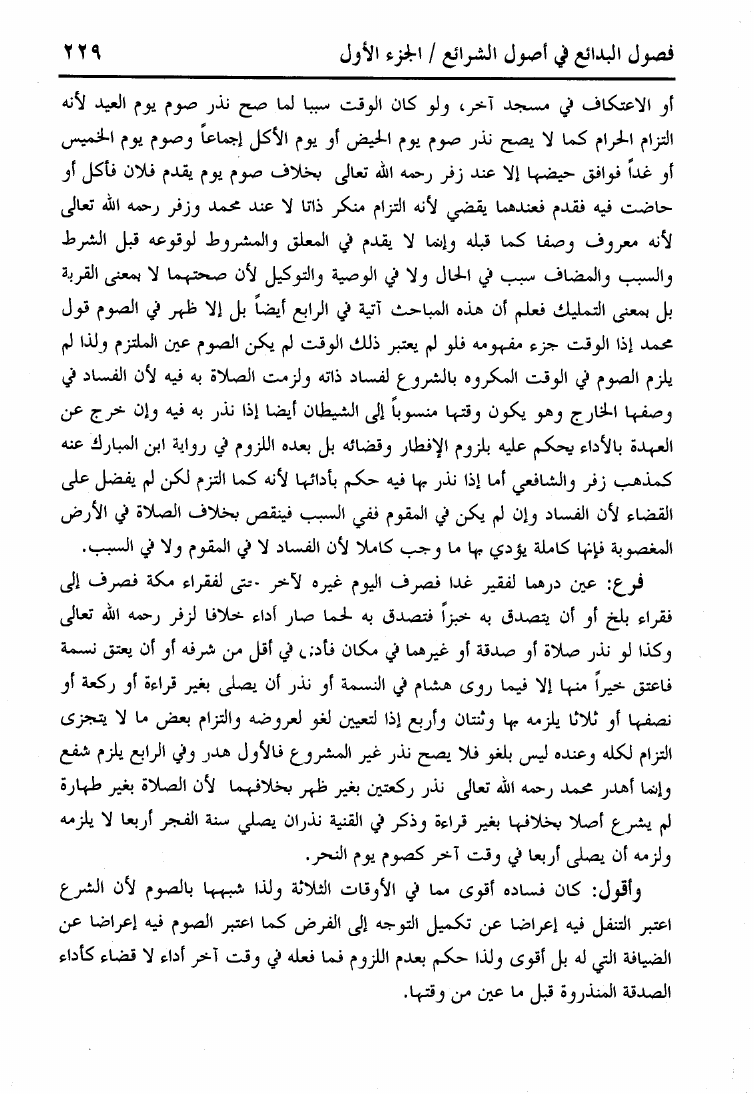 فصول البدائع في أصول الشرائع / الجزء الأول ٢٢٩
أو الاعتكاف في مسجد آخر، ولو كان الوقت سببا لما صح نذر صوم يوم العيد لأنه
التزام الحرام كما لا يصح نذر صوم يوم الحيض أو يوم الأكل إجماعاً وصوم يوم الخميس
أو غداً فوافق حيضها إلا عند زفر رحمه الله تعالى بخلاف صوم يوم يقدم فلان فأكل أو
حاضت فيه فقدم فعندهما يقضي لأنه التزام منكر ذاتا لا عند محمد وزفر رحمه الله تعالى
لأنه معروف وصفا كما قبله وإنما لا يقدم في المعلق والمشروط لوقوعه قبل الشرط
والسبب والمضاف سبب في الحال ولا في الوصية والتوكيل لأن صحتهما لا بمعنى القربة
بل بمعنى التمليك فعلم أن هذه المباحث آتية في الرابع أيضاً بل إلا ظهر في الصوم قول
محمد إذا الوقت جزء مفهومه فلو لم يعتبر ذلك الوقت لم يكن الصوم عين الملتزم ولذا لم
يلزم الصوم في الوقت المكروه بالشروع لفساد ذاته ولزمت الصلاة به فيه لأن الفساد في
وصفها الخارج وهو يكون وقتها منسوباً إلى الشيطان أيضا إذا نذر به فيه وإن خرج عن
العهدة بالأداء يحكم عليه بلزوم الإفطار وقضائه بل بعده اللزوم في رواية ابن المبارك عنه
كمذهب زفر والشافعي أما إذا نذر بها فيه حكم بأدائها لأنه كما التزم لكن لم يفضل على
القضاء لأن الفساد وإن لم يكن في المقوم ففي السبب فينقص بخلاف الصلاة في الأرض
المغصوبة فإنها كاملة يؤدي بها ما وجب كاملا لأن الفساد لا في المقوم ولا في السبب.
فرع: عين درهما لفقير غدا فصرف اليوم غيره لآخر لفقراء مكة فصرف إلى
فقراء بلخ أو أن يتصدق به خبزاً فتصدق به لحما صار أداء خلافا لزفر رحمه الله تعالى
وكذا لو نذر صلاة أو صدقة أو غيرهما في مكان فأدى في أقل من شرفه أو أن يعتق نسمة
فاعتق خيراً منها إلا فيما روى هشام في النسمة أو نذر أن يصلى بغير قراءة أو ركعة أو
نصفها أو ثلاثا يلزمه بها وثنتان وأربع إذا لتعيين لغو لعروضه والتزام بعض ما لا يتجزى
التزام لكله وعنده ليس بلغو فلا يصح نذر غير المشروع فالأول هدر وفي الرابع يلزم شفع
وإنما أهدر محمد رحمه الله تعالى نذر ركعتين بغير ظهر بخلافهما لأن الصلاة بغير طهارة
لم يشرع أصلا بخلافها بغير قراءة وذكر في القنية نذران يصلي سنة الفجر أربعا لا يلزمه
ولزمه أن يصلى أربعا في وقت آخر كصوم يوم النحر.
وأقول: كان فساده أقوى مما في الأوقات الثلاثة ولذا شبهها بالصوم لأن الشرع
اعتبر التنفل فيه إعراضا عن تكميل التوجه إلى الفرض كما اعتبر الصوم فيه إعراضا عن
الضيافة التي له بل أقوى ولذا حكم بعدم اللزوم فما فعله في وقت آخر أداء لا قضاء كأداء
الصدقة المنذروة قبل ما عين من وقتها.